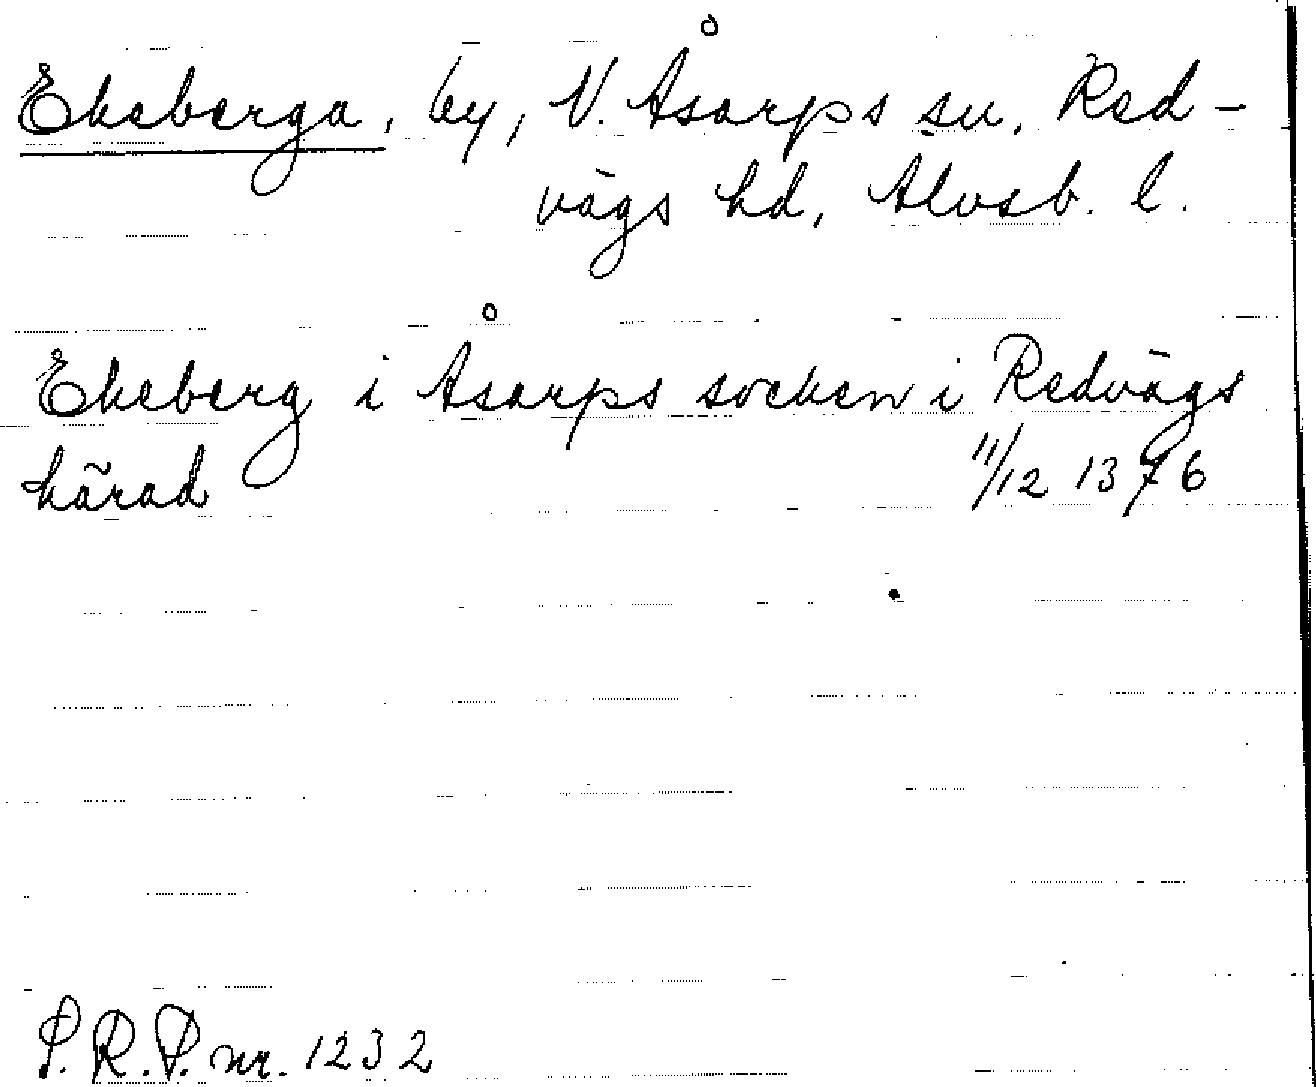 Ekeberga, by, N. Åsarps sn, Red-
vägs hd, Älvsb. l.
Ekeberg i Åsarps socken i Redvägs
härad 11/12 1376
P.R.P. nr. 1232